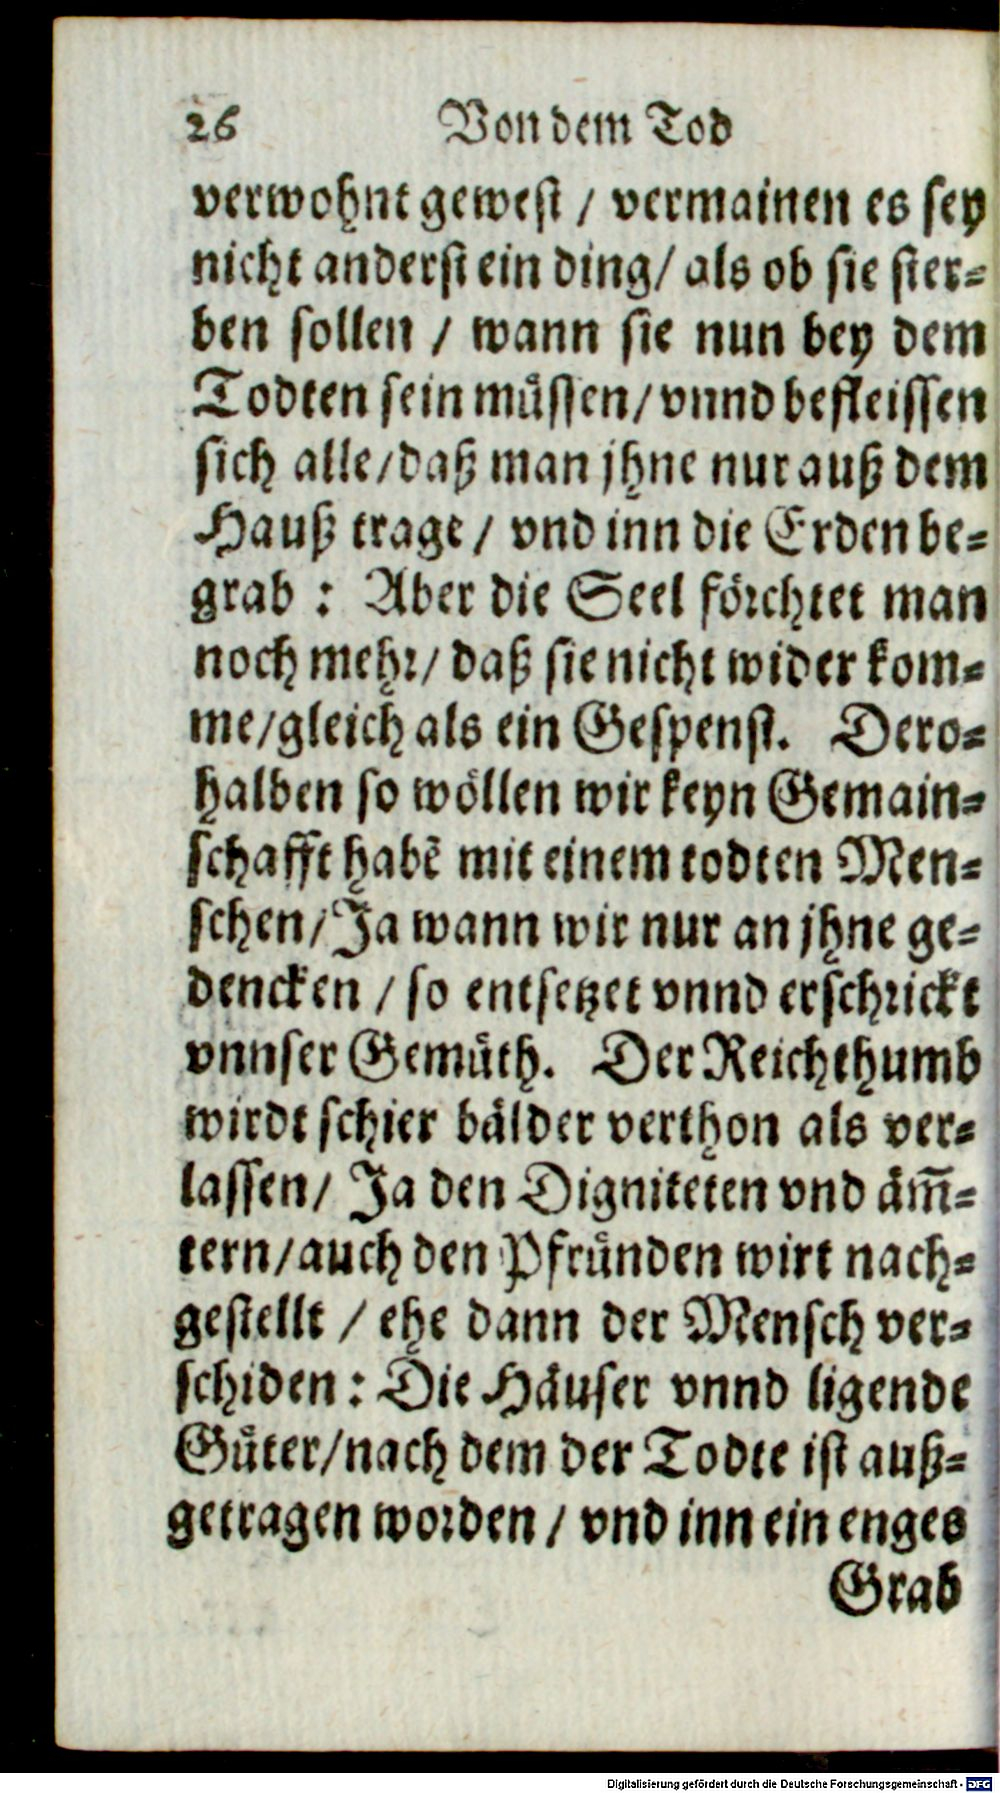 26 Von dem Tod
verwohnt gewest / vermainen es sey
nicht anderst ein ding / als ob sie ster⸗
ben sollen / wann sie nun bey dem
Todten sein müssen / vnnd befleissen
sich alle / daß man jhne nur auß dem
Hauß trage / vnd inn die Erden be⸗
grab : Aber die Seel förchtet man
noch mehr / daß sie nicht wider kom⸗
me / gleich als ein Gespenst. Dero⸗
halben so wöllen wir keyn Gemain⸗
schafft habẽ mit einem todten Men⸗
schen / Ja wann wir nur an jhne ge⸗
dencken / so entsetzet vnnd erschrickt
vnnser Gemüth. Der Reichthumb
wirdt schier bälder verthon als ver⸗
lassen / Ja den Digniteten vnd äm̃⸗
tern / auch den Pfründen wirt nach⸗
gestellt / ehe dann der Mensch ver⸗
schiden : Die Häuser vnnd ligende
Güter / nach dem der Todte ist auß⸗
getragen worden / vnd inn ein enges
Grab
Digitalisierung gefördert durch die Deutsche Forschungsgemeinschaft - DFG